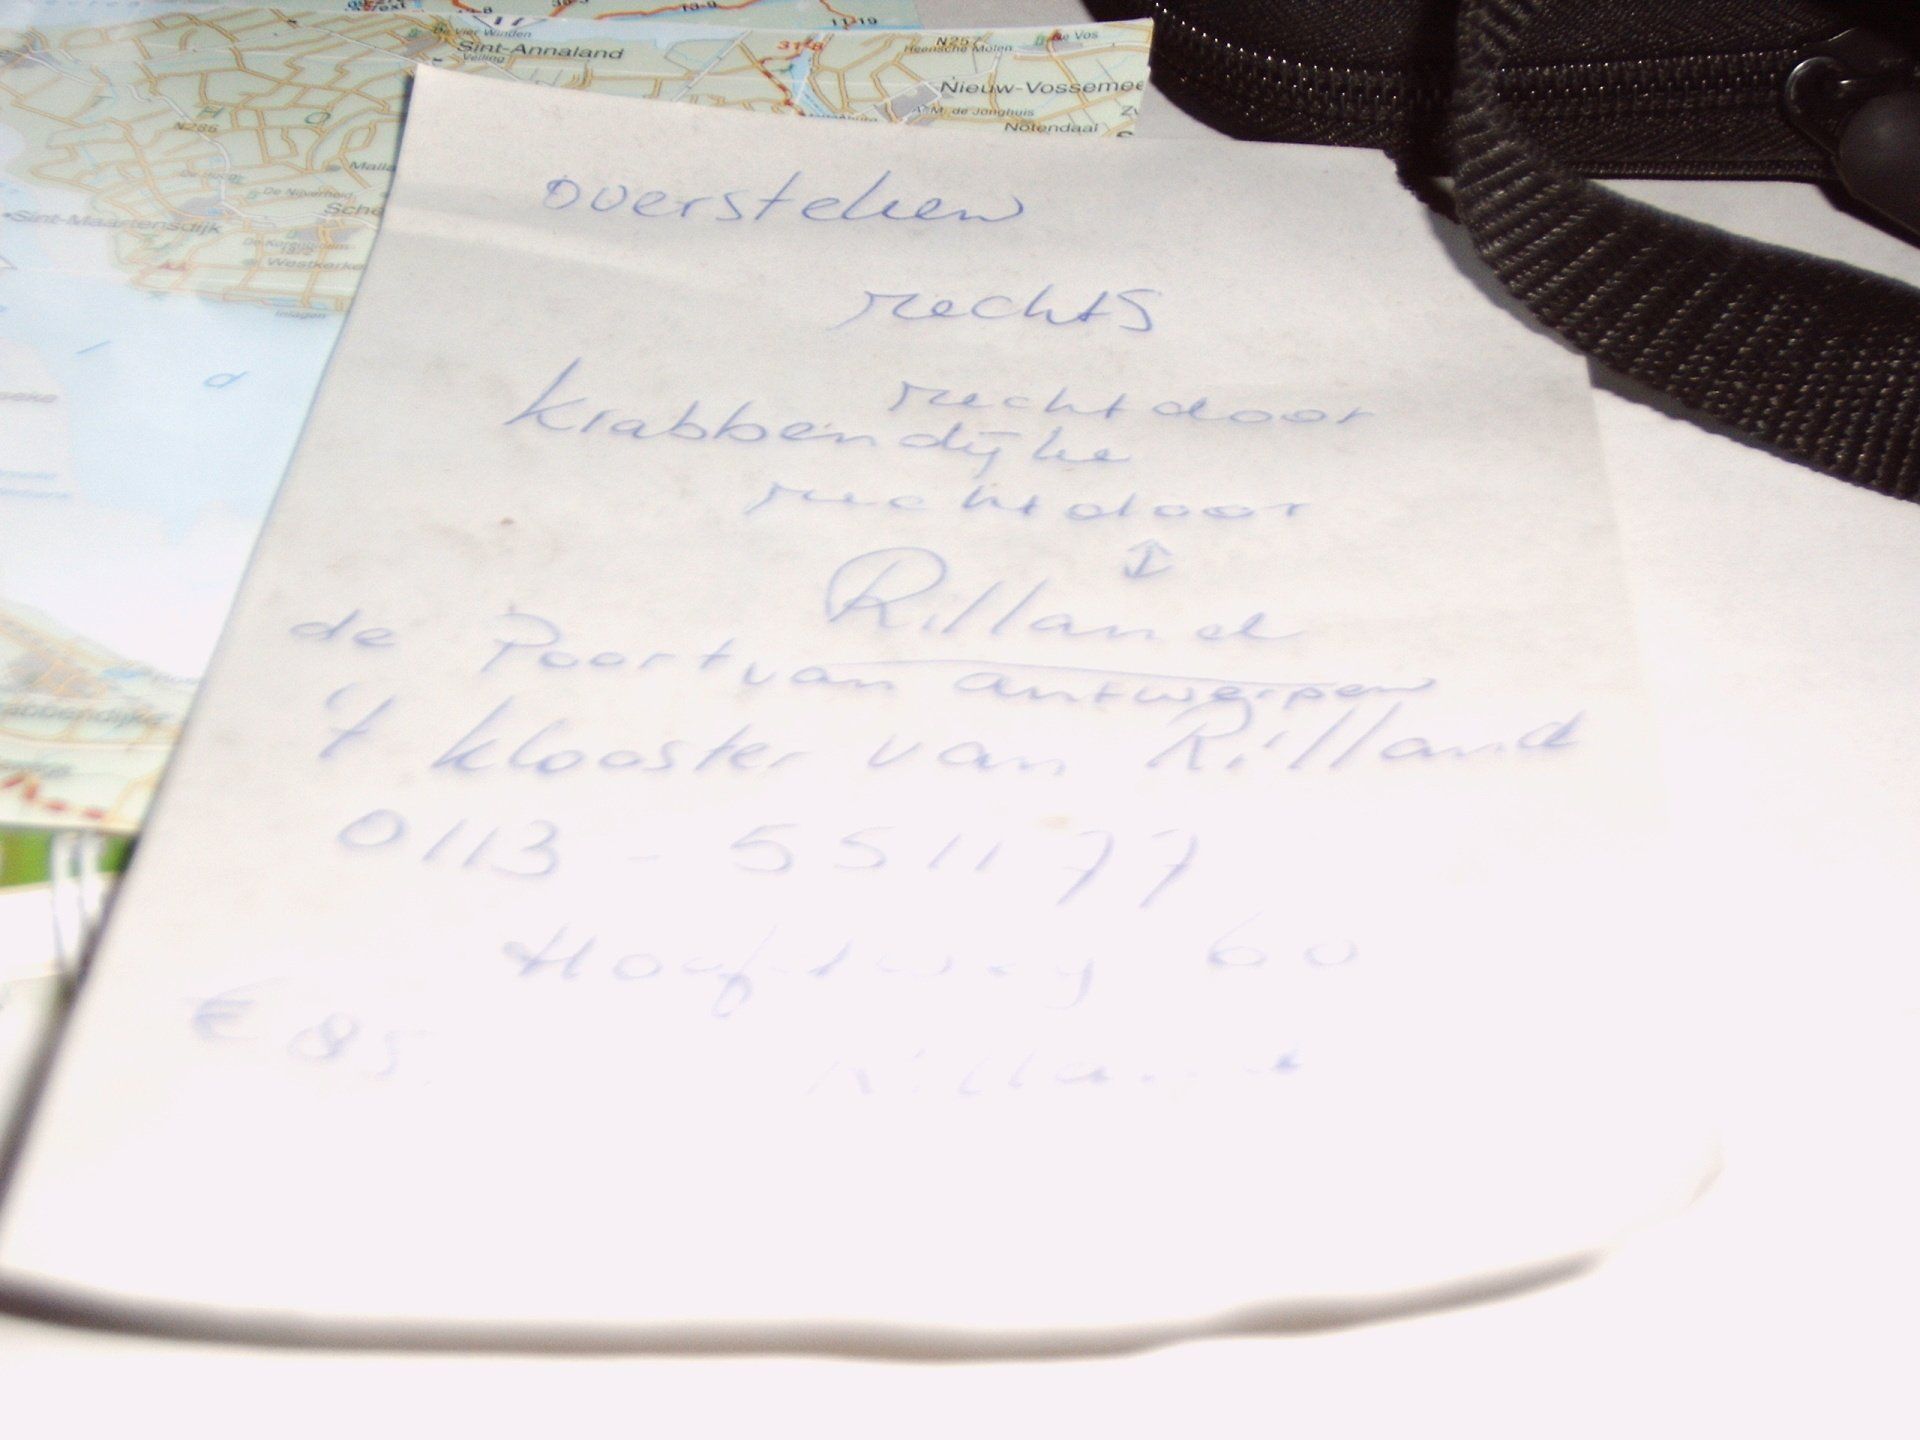 De Vier Winden
Sint-Annaland
Veiling
N257
Heensche Molen
De Vos
11-19
Nieuw-Vossemee
A.M. de Jonghuis
Notendaal
N286
Sint-Maartensdijk
Sche
Westkerke
Inlagen
abbendijke
d
oversteken
rechts
rechtdoor
Krabbendijke
rechtdoor
↕
Rilland
de Poort van antwerpen
't klooster van Rilland
0113 - 551177
Hoofdweg 60
€ 85.
Rilland